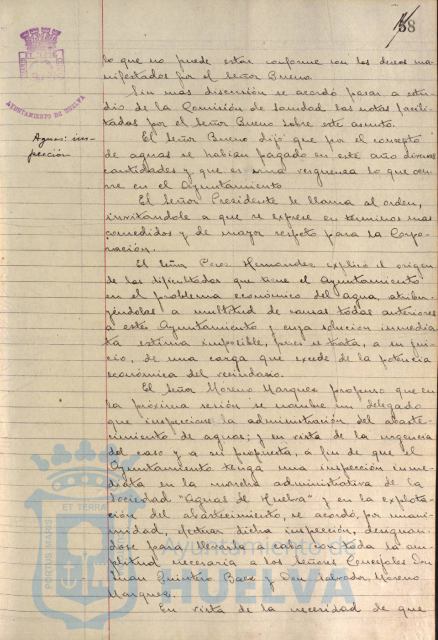 58
AYUNTAMIENTO DE HUELVA
lo que no puede estar conforme con los deseos ma-
nifestados por el Señor Bueno.
Sin más discusión se acordó pasar a estu-
dio de la Comisión de Sanidad las notas facili-
tadas por el Señor Bueno sobre este asunto.
Aguas: ins-
pección
El Señor Bueno dijo que por el concepto
de aguas se habían pagado en este año diversas
cantidades y que es una verguenza lo que ocu-
rre en el Ayuntamiento.
El Señor Presidente le llama al orden,
invitándole a que se exprese en terminos mas
comedidos y de mayor respeto para la Corpo-
ración.
El Señor Perez Hernandez explicó el origen
de las dificultades que tiene el Ayuntamiento
en el problema económico del agua, atribu-
yéndolas a multitud de causas todas anteriores
a este Ayuntamiento y cuya solución inmedia-
ta estima imposible, pues se trata, a su jui-
cio, de una carga que excede de la potencia
económica del vecindario.
El Señor Moreno Marquez propuso que en
la próxima sesión se nombre un delegado
que inspeccione la administración del abaste-
cimiento de aguas; y en vista de la urgencia
del caso y a su propuesta, a fin de que el
Ayuntamiento tenga una inspección inme-
diata en la marcha administrativa de la
Sociedad "Aguas de Huelva" y en la explota-
ción del abastecimiento, se acordó, por unani-
midad, efectuar dicha inspección, designan-
dose para llevarla a cabo por toda la am-
plitud necesaria a los señores Concejales Don
Juan Quintero Baez y Don Salvador Moreno
Marquez.
En vista de la necesidad de que
PORTUS MARIS
ET TERRAE
Ayuntamiento de
HUELVA